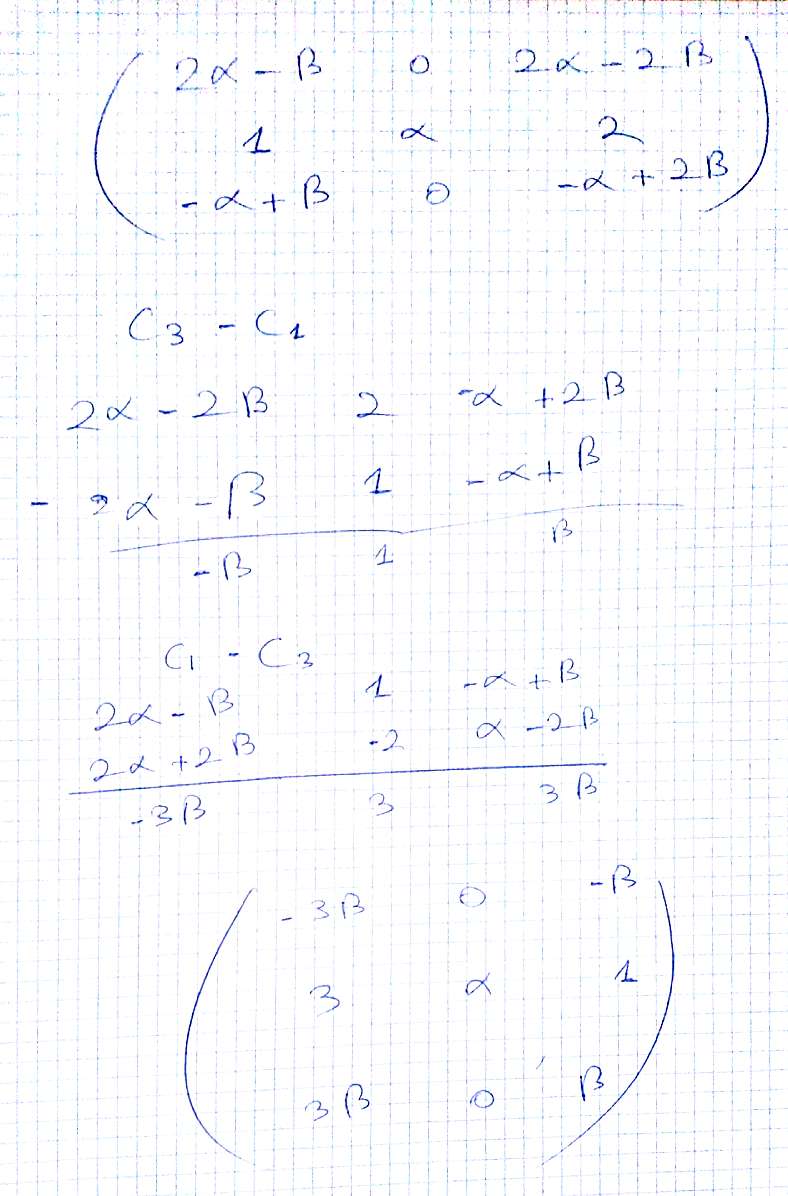 2α - β 0 2α - 2β
1 α 2
-α + β 0 -α + 2β
C3 - C1
2α - 2β 2 -α + 2β
- 2α - β 1 -α + β
-β 1 β
C1 - C3
2α - β 1 -α + β
2α + 2β -2 α - 2β
-3β 3 3β
-3β 0 -β
3 α 1
3β 0 β